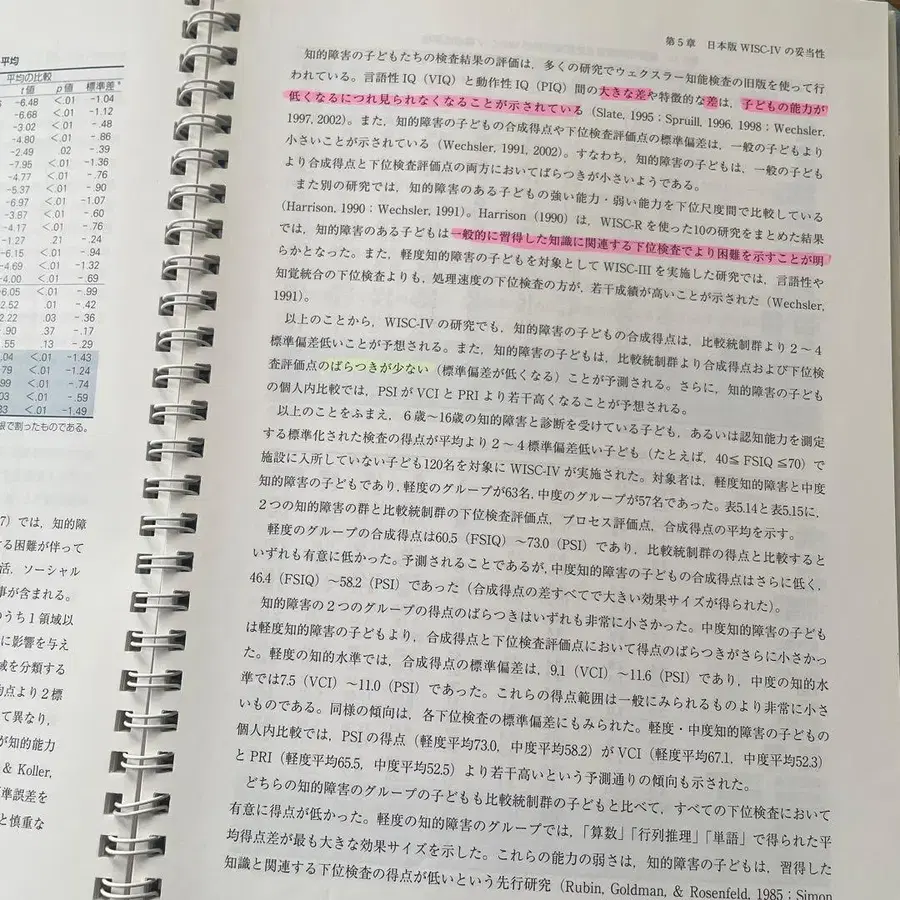 平均
平均の比較
t値 p値 標準差*
-6.48 <.01 -1.04
-6.68 <.01 -1.12
-3.02 <.01 -.48
-4.80 <.01 -.86
-2.49 .02 -.39
-7.95 <.01 -1.36
-4.77 <.01 -.76
-5.37 <.01 -.90
-6.97 <.01 -1.07
-3.87 <.01 -.60
-4.17 <.01 -.76
-1.27 .21 -.24
-6.15 <.01 -.94
-4.69 <.01 -1.32
-4.00 <.01 -.69
-6.05 <.01 -.99
2.52 .01 -.42
2.22 .03 -.36
.90 .37 -.17
.55 .13 -.29
.04 <.01 -1.43
79 <.01 -1.24
99 <.01 -.74
03 <.01 -.59
33 <.01 -1.49
根で割ったものである。
7)では,知的障
る困難が伴って
活,ソーシャル
事が含まれる。
のうち1領域以
に影響を与え
域を分類する
均点より2標
て異なり,
が知的能力
& Koller,
準誤差を
と慎重な
第5章 日本版 WISC-IV の妥当性
知的障害の子どもたちの検査結果の評価は,多くの研究でウェクスラー知能検査の旧版を使って行
われている。言語性IQ(VIQ)と動作性IQ(PIQ)間の大きな差や特徴的な差は,子どもの能力が
低くなるにつれ見られなくなることが示されている(Slate, 1995;Spruill, 1996, 1998;Wechsler,
1997, 2002)。また,知的障害の子どもの合成得点や下位検査評価点の標準偏差は,一般の子どもより
小さいことが示されている(Wechsler, 1991, 2002)。すなわち,知的障害の子どもは,一般の子ども
より合成得点と下位検査評価点の両方においてばらつきが小さいようである。
また別の研究では,知的障害のある子どもの強い能力・弱い能力を下位尺度間で比較している
(Harrison, 1990;Wechsler, 1991)。Harrison(1990)は,WISC-Rを使った10の研究をまとめた結果
では,知的障害のある子どもは一般的に習得した知識に関連する下位検査でより困難を示すことが明
らかとなった。また,軽度知的障害の子どもを対象としてWISC-IIIを実施した研究では,言語性や
知覚統合の下位検査よりも,処理速度の下位検査の方が,若干成績が高いことが示された(Wechsler,
1991)。
以上のことから,WISC-IVの研究でも,知的障害の子どもの合成得点は,比較統制群より2〜4
標準偏差低いことが予想される。また,知的障害の子どもは,比較統制群より合成得点および下位検
査評価点のばらつきが少ない(標準偏差が低くなる)ことが予測される。さらに,知的障害の子ども
の個人内比較では,PSIがVCIとPRIより若干高くなることが予想される。
以上のことをふまえ,6歳〜16歳の知的障害と診断を受けている子ども,あるいは認知能力を測定
する標準化された検査の得点が平均より2〜4標準偏差低い子ども(たとえば,40≦ FSIQ ≦70)で
施設に入所していない子ども120名を対象にWISC-IVが実施された。対象者は,軽度知的障害と中度
知的障害の子どもであり,軽度のグループが63名,中度のグループが57名であった。表5.14と表5.15に,
2つの知的障害の群と比較統制群の下位検査評価点,プロセス評価点,合成得点の平均を示す。
軽度のグループの合成得点は60.5(FSIQ)〜73.0(PSI)であり,比較統制群の得点と比較すると
いずれも有意に低かった。予測されることであるが,中度知的障害の子どもの合成得点はさらに低く,
46.4(FSIQ)〜58.2(PSI)であった(合成得点の差すべてで大きい効果サイズが得られた)。
知的障害の2つのグループの得点のばらつきはいずれも非常に小さかった。中度知的障害の子ども
は軽度知的障害の子どもより,合成得点と下位検査評価点において得点のばらつきがさらに小さかっ
た。軽度の知的水準では,合成得点の標準偏差は,9.1(VCI)〜11.6(PSI)であり,中度の知的水
準では7.5(VCI)〜11.0(PSI)であった。これらの得点範囲は一般にみられるものより非常に小さ
いものである。同様の傾向は,各下位検査の標準偏差にもみられた。軽度・中度知的障害の子どもの
個人内比較では,PSIの得点(軽度平均73.0,中度平均58.2)がVCI(軽度平均67.1,中度平均52.3)
とPRI(軽度平均65.5,中度平均52.5)より若干高いという予測通りの傾向も示された。
どちらの知的障害のグループの子どもも比較統制群の子どもと比べて,すべての下位検査において
有意に得点が低かった。軽度の知的障害のグループでは,「算数」「行列推理」「単語」で得られた平
均得点差が最も大きな効果サイズを示した。これらの能力の弱さは,知的障害の子どもは,習得した
知識と関連する下位検査の得点が低いという先行研究(Rubin, Goldman, & Rosenfeld, 1985;Simon